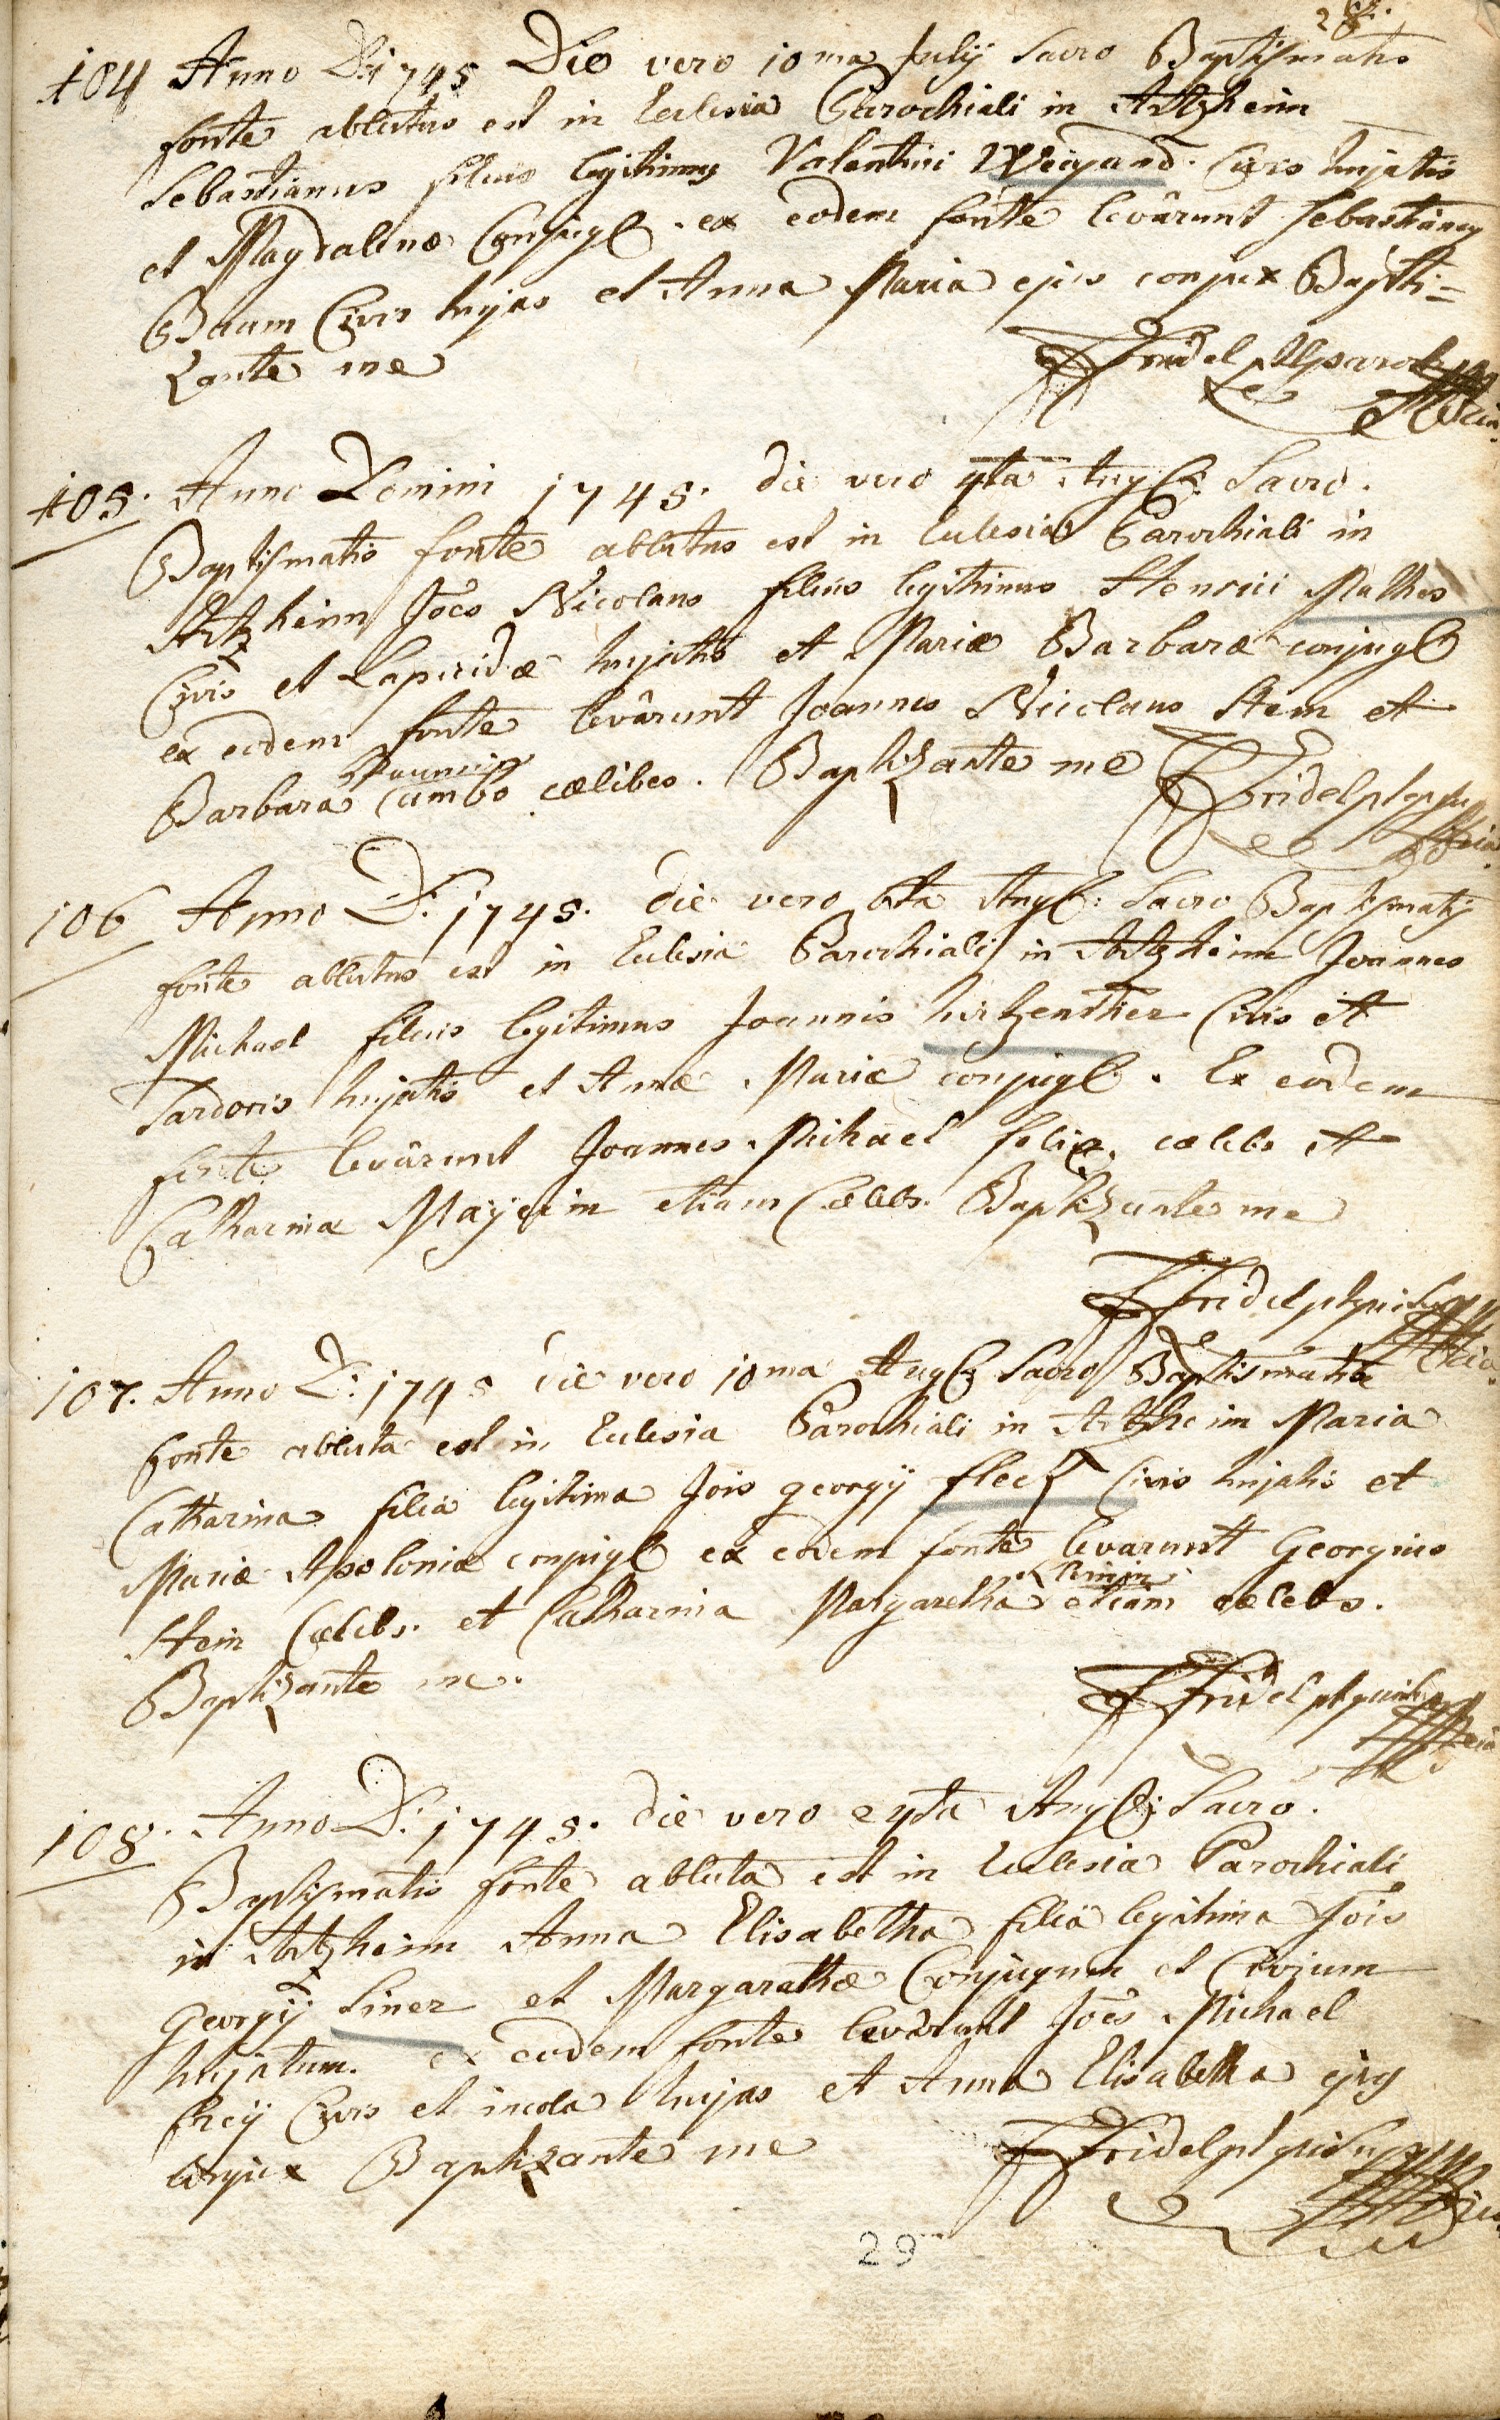 104 Anno D: 1745 Die vero 10ma July Sacro Baptismatis
fonte ablutus est in Eclesia Parochiali in Artzheim
Sebastianus filius legitimus Valentini Weigand Civis hujatis
et Magdalenæ Conjugℓ. ex eodem fonte levârunt Sebastianus
Baum Civis hujas et Anna Maria ejus conjux Bapti=
zante me
Fridel
105. Anno Domini 1745. die vero 4ta Augℓ: Sacro.
Baptismatis fonte ablutus est in Eclesia Parochiali in
Artzheim Joes Nicolaus filius legitimus Henrici Mathes
Civis et Lapicidæ hujatis et Mariæ Barbaræ conjugℓ
ex eodem fonte levârunt Joannes Nicolaus Stem et
Barbara ambo cælibes. Baptizante me Fridel
106 Anno D: 1745. die vero 6ta Augℓ: Sacro Baptismatis
fonte ablutus est in Eclesia Parochiali in Artzheim Joannes
Michael filius legitimus Joannis hirtzenthier Civis et
Sardoris hujatis et Annæ Mariæ conjugℓ. Ex eodem
fonte levârunt Joannes Michael felix, cælebs et
Catharina Mayerin etiam Cælebs. Baptizante me
Fridel
107. Anno D: 1745 die vero 10ma Augℓ Sacro Baptismatis
fonte abluta est in Eclesia Parochiali in Artzheim Maria
Catharina filia legitima Jois georgÿ fleck Civis hujatis et
Mariæ Apoloniæ conjugℓ ex eodem fonte levarunt Georgius
Stein Cælebs. et Catharina Margaretha etiam cælebs.
Baptizante me.
Fridel
108. Anno D: 1745. die vero 24ta Augℓ: Sacro.
Baptismatis fonte abluta est in Eclesia Parochiali
in Artzheim Anna Elisabetha filia legitima Jois
Georgÿ Siner et Margarathæ Conjugum et Civium
hujatum. ex eodem fonte levârunt Joes Michael
freÿ Civis et incola hujas et Anna Elisabetha ejus
conjux Baptizante me
Fridel
29